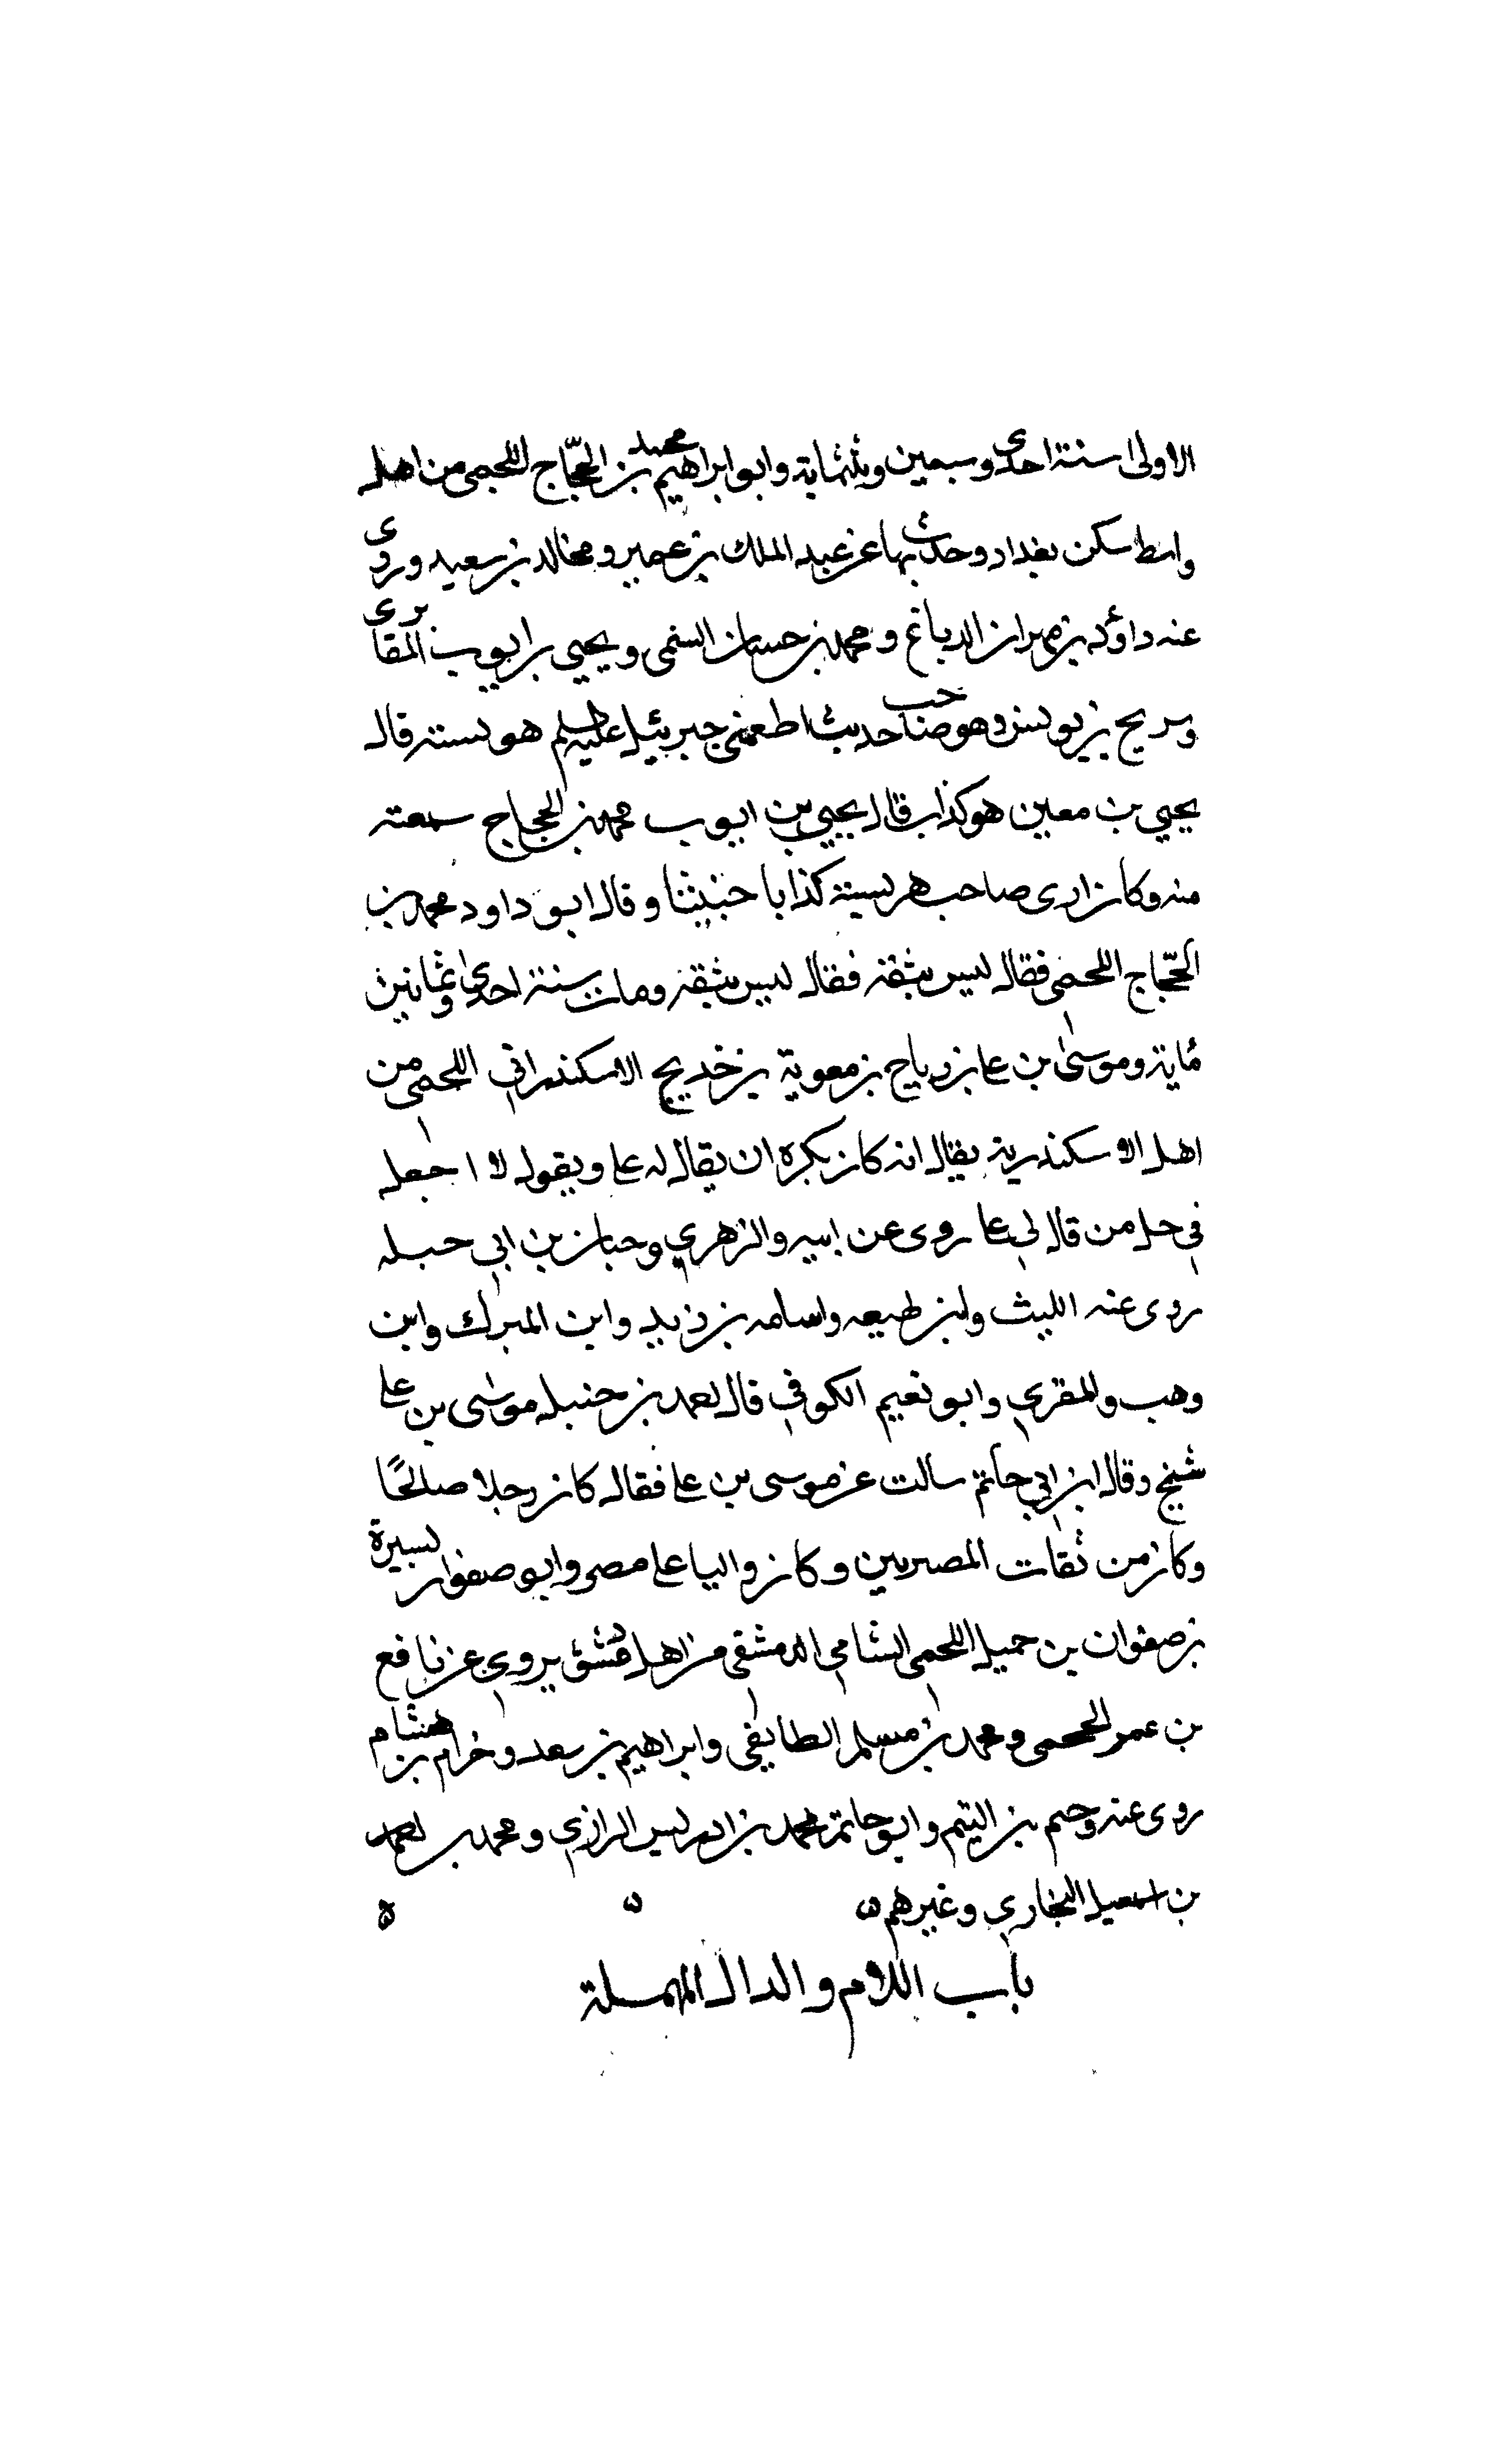 الاولى سنة احدى وسبعين وثلثماية وابو ابراهيم محمد بن الحجّاج اللخمى من اهل
واسط سكن بغداد وحدث بها عن عبد الملك بن عمير ومخالد بن سعيد وروى
عنه داؤد بن مهران الدباغ ومحمد بن حسان السمتى ويحيى بن ايوب المقابرى
وسريج بن يونس وهو صاحب حديث اطعمنى جبرئيل عليه السلم هريسة قال
يحيى بن معين هو كذاب قال يحيى بن ايوب محمد بن الحجاج سمعته
منه وكان ارى صاحب هريسة كذابا خبيثا وقال ابو داود محمد بن
الحجّاج اللخمى فقال ليس بثقة فقال ليس بثقة ومات سنة احدى وثمانين
مٔاية وموسىٰ بن على بن رباح بن معوية بن خديج الاسكندرانى اللخمى من
اهل الاسكندرية يقال انه كان يكره ان يقال له على ويقول لا اجعل
فى حل من قال لى على روى عن ابيه والزهري وحبان بن ابي حبله
روى عنه الليث وابن لهيعه واسامه بن زيد وابن المبرك وابن
وهب والمقرى وابو نعيم الكوفي قال احمد بن حنبل موسٰى بن على
شيخ وقال ابن ابي حاتم سالت عن موسى بن على فقال كان رجلا صالحًا
وكان من ثقات المصريين وكان واليا على مصر وابو صفوان يسيرة
بن صفوان بن جميل اللخمى الشامى الدمشقى من اهل دمشق يروى عن نافع
بن عمر الجمحى ومحمد بن مسلم الطايفى وابراهيم بن سعد وخرام بن هشام
روى عنه دحيم بن اليتيم وابو حاتم محمد بن ادريس الرازي ومحمد بن احمد
بن اسمعيل البخارى وغيرهم ه ه ه
باب اللام والدال المهملة